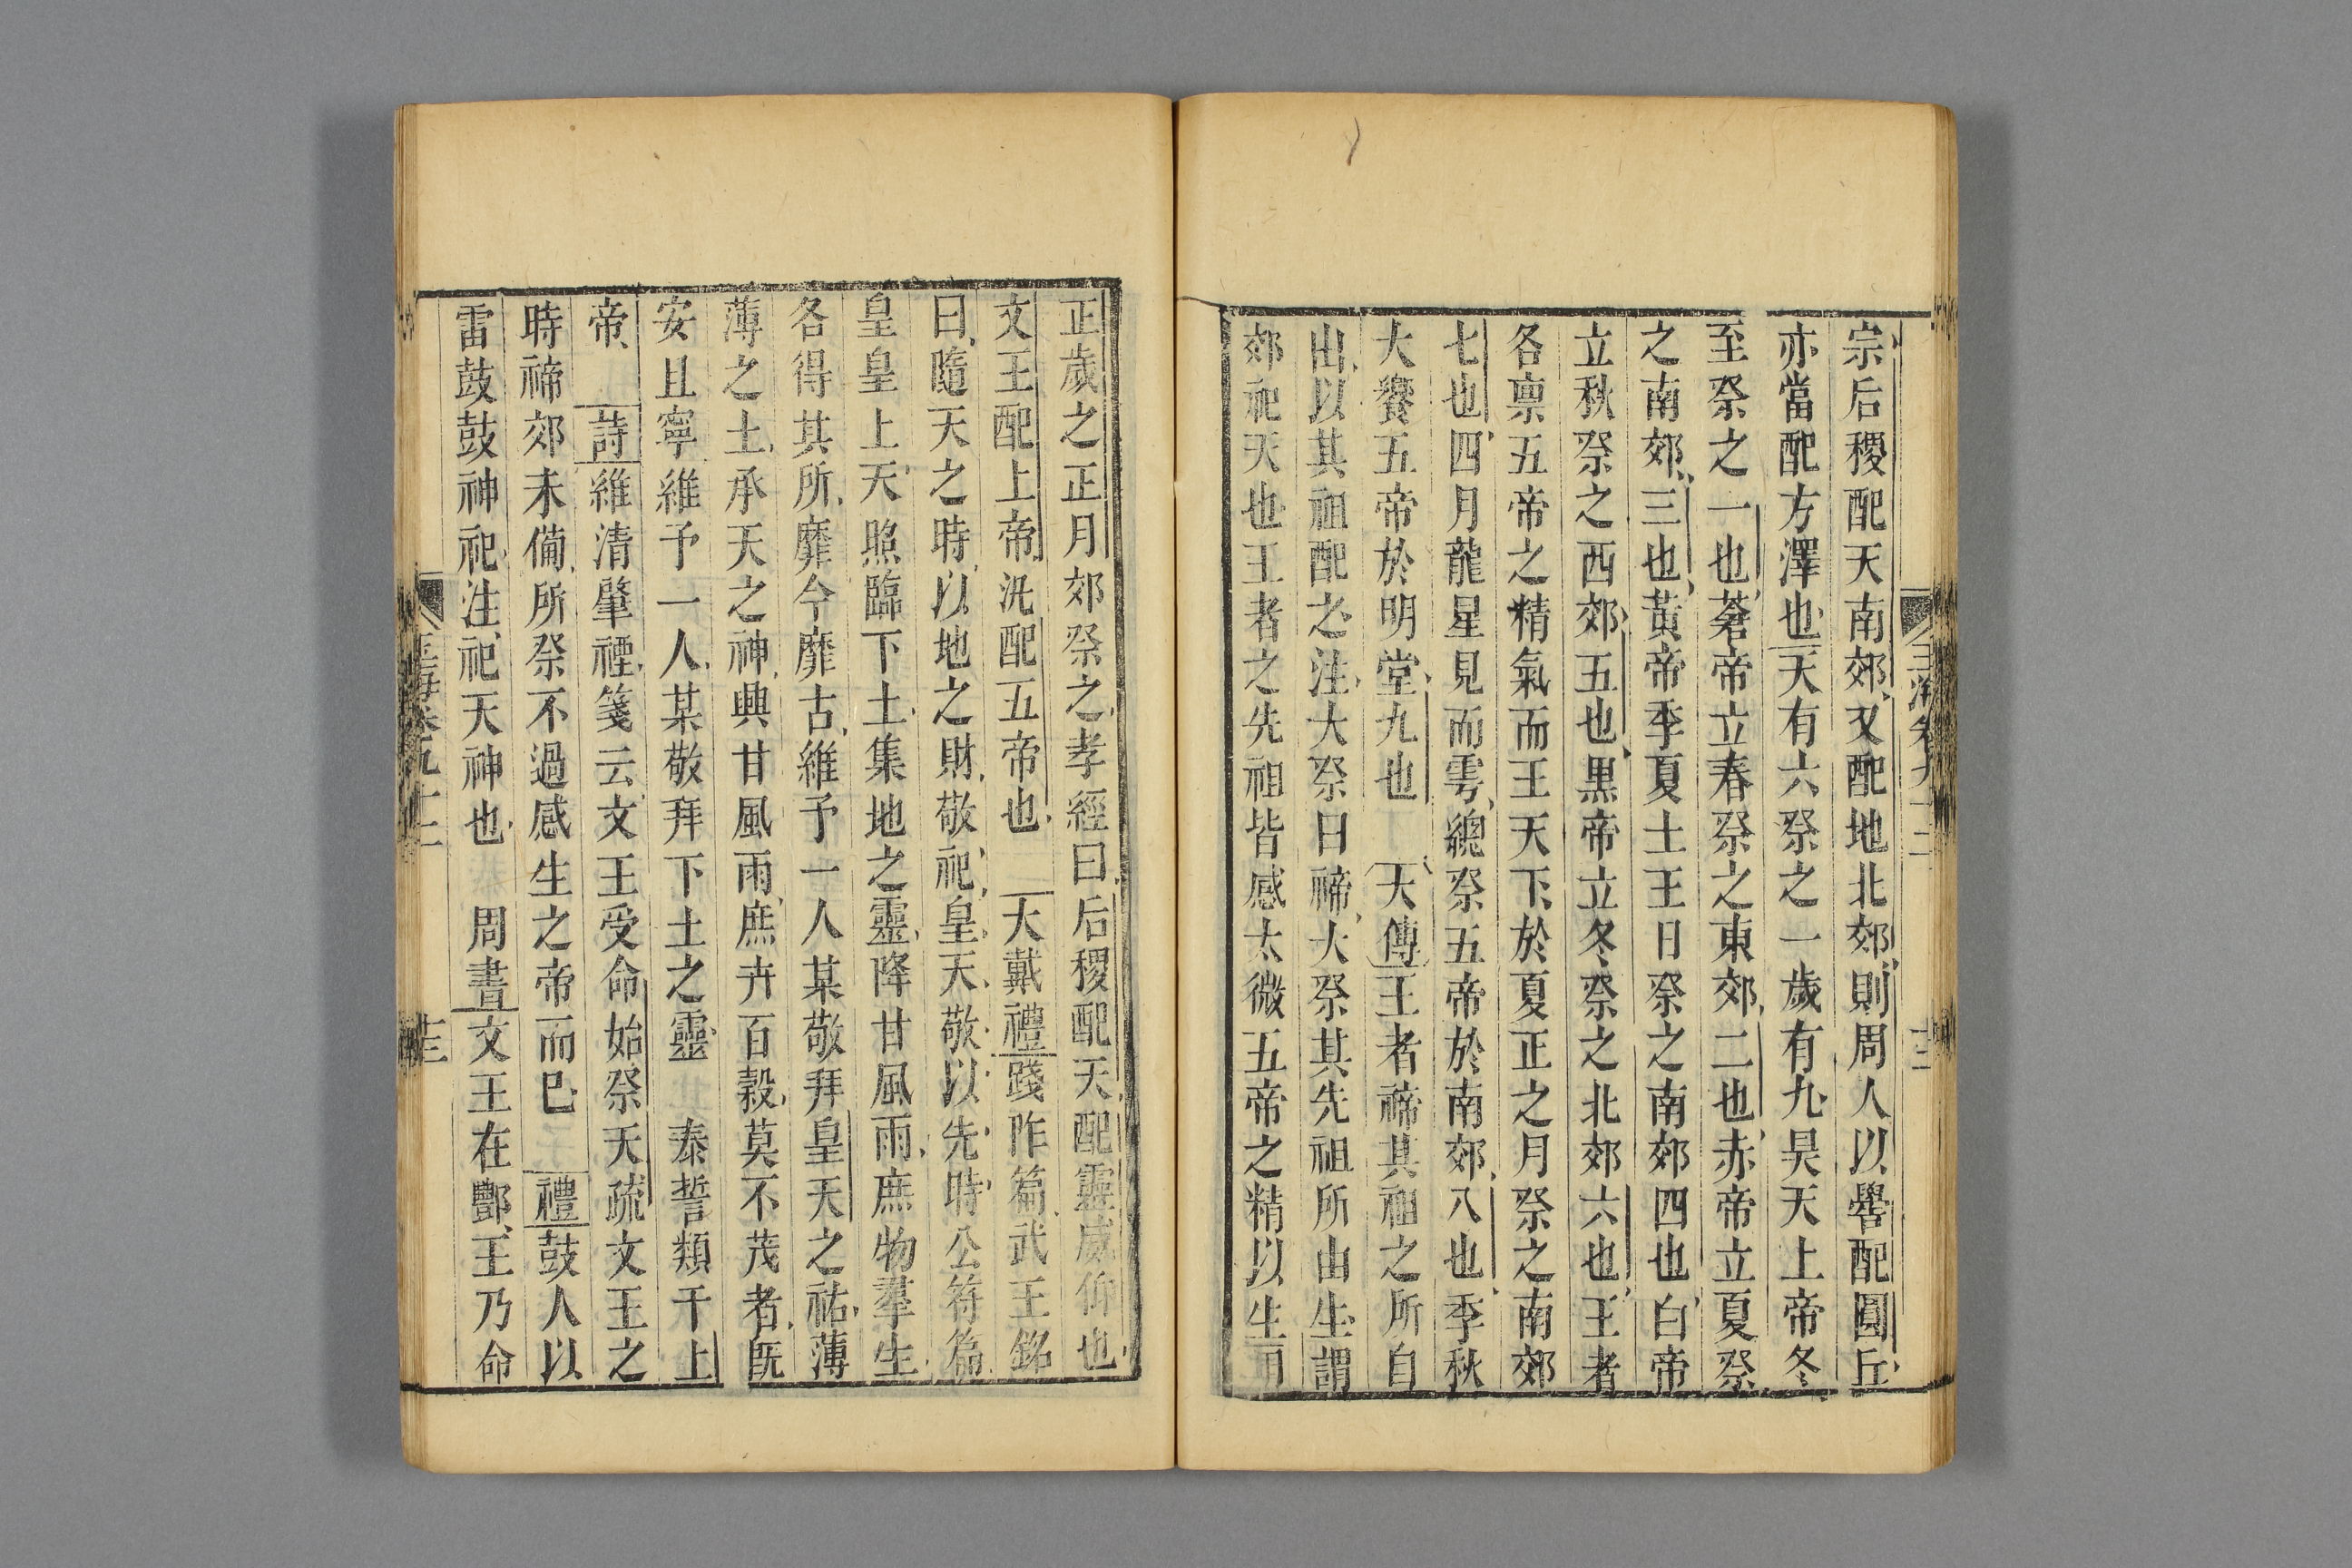 宗后稷配天南郊又配地北郊則周人以嚳配圓丘
亦當配方澤也天有六祭之一歲有九昊天上帝冬
至祭之一也蒼帝立春祭之東郊二也赤帝立夏祭
之南郊三也黃帝季夏土王日祭之南郊四也白帝
立秋祭之西郊五也黑帝立冬祭之北郊六也王者
各禀五帝之精氣而王天下於夏正之月祭之南郊
七也四月龍星見而雩總祭五帝於南郊八也季秋
大饗五帝於明堂九也 大傳王者禘其祖之所自
出以其祖配之注大祭曰禘大祭其先祖所由生謂
郊祀天也王者之先祖皆感太微五帝之精以生用
正歲之正月郊祭之孝經曰后稷配天配靈威仰也
文王配上帝汎配五帝也 大戴禮踐阼篇武王銘
曰隨天之時以地之財敬祀皇天敬以先時公符篇
皇皇上天照臨下土集地之靈降甘風雨庶物羣生
各得其所靡今靡古維予一人某敬拜皇天之祐薄
薄之土承天之神興甘風雨庶卉百穀莫不茂者既
安且寧維予一人某敬拜下土之靈 泰誓類于上
帝 詩維清肇禋箋云文王受命始祭天疏文王之
時禘郊未備所祭不過感生之帝而巳 禮鼓人以
雷鼓鼓神祀注祀天神也 周書文王在酆王乃命